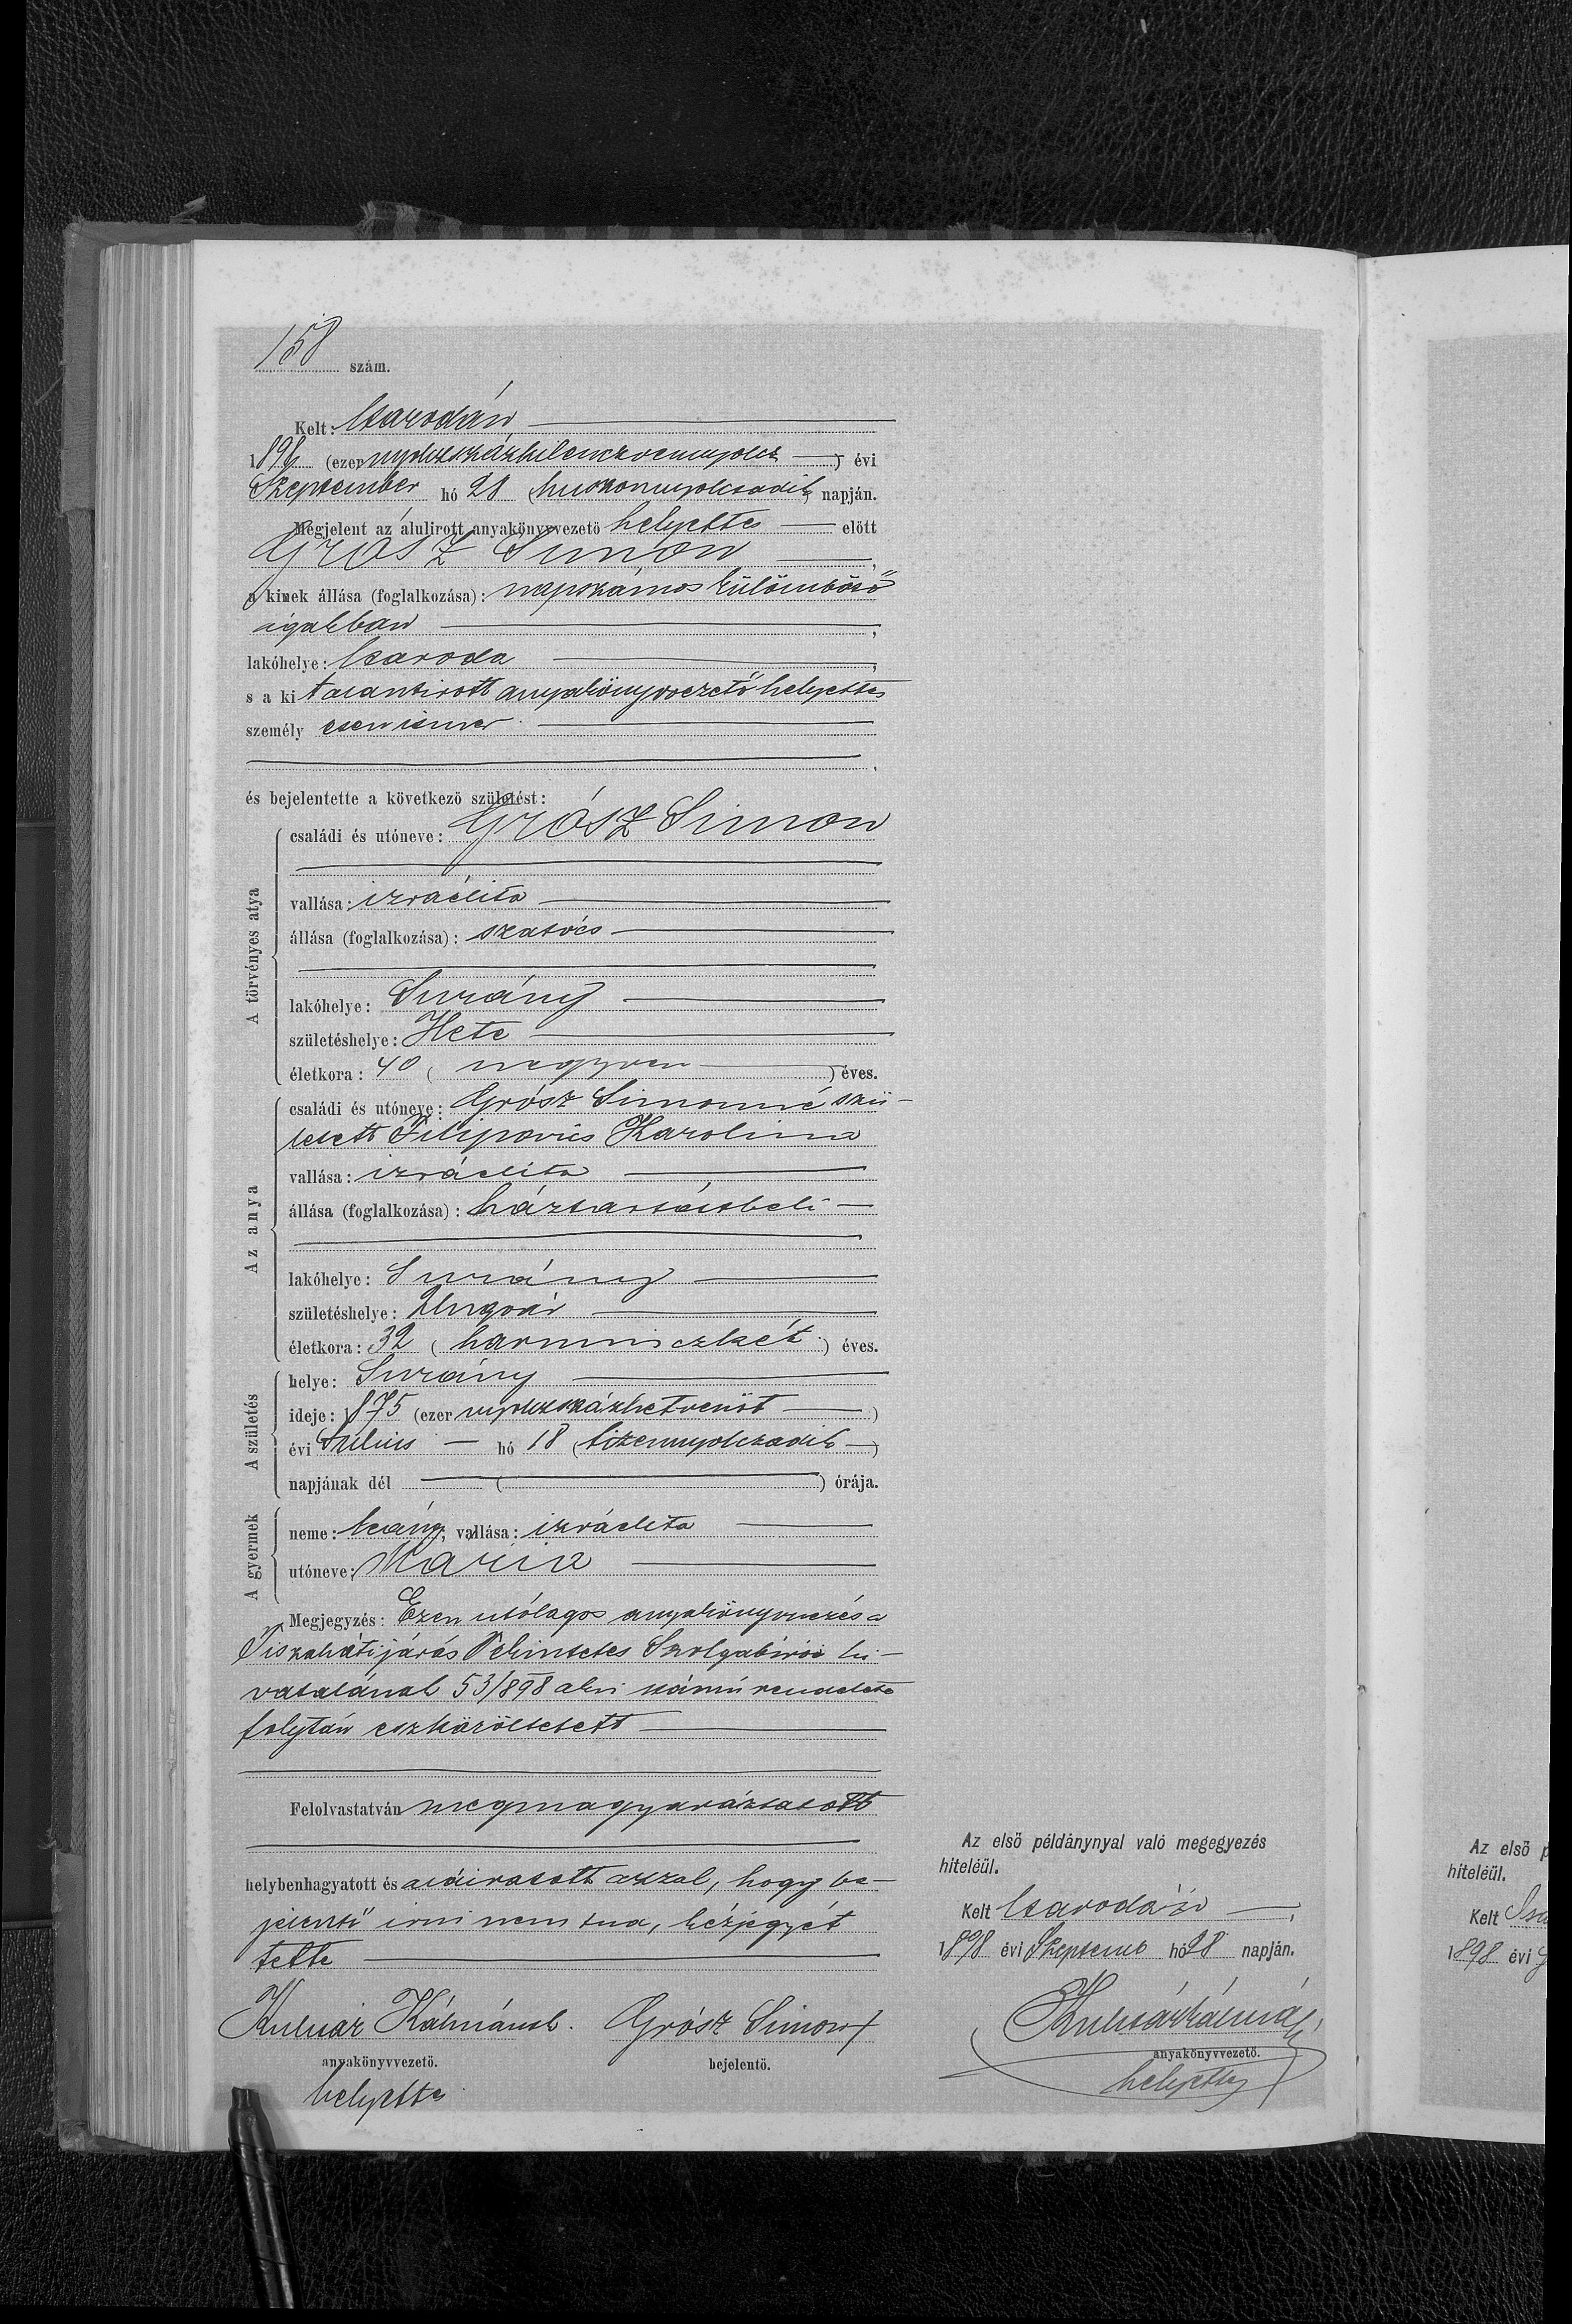 158 szám.
Kelt: Csarodán
1898 (ezernyolczszázkilenczvennyolcz) évi
Szeptember hó 28 (huszonnyolczadik) napján.
Megjelent az alulirott anyakönyvvezető helyettes előtt
Grósz Simon,
a kinek állása (foglalkozása): napszámos külömböző
ágakban,
lakóhelye: Csaroda,
s a ki t alantirott anyakönyvvezető helyettes
személyesen ismer
és bejelentette a következő születést:
A törvényes atya
családi és utóneve: Grósz Simon
vallása: izraélita
állása (foglalkozása): szatócs
lakóhelye: Surány
születéshelye: Hete
életkora: 40 (negyven) éves.
Az anya
családi és utóneve: Grósz Simonné szü-
letett Filipovics Karolina
vallása: izráelita
állása (foglalkozása): háztartásbeli
lakóhelye: Surány
születéshelye: Ungvár
életkora: 32 (harminczkét) éves.
A születés
helye: Surány
ideje: 1875 (ezer nyolczszázhetvenöt)
évi Julius hó 18 (tizennyolczadik)
napjának dél () órája.
A gyermek
neme: leány, vallása: izráelita
utóneve: Mária
Megjegyzés: Ezen utólagos anyakönyvvezés a
Tiszaháti járás Tekintetes Szolgabirói hi-
vatalának 53/898 alni számú rendelete
folytán eszközöltetett
Felolvastatván megmagyaráztatott
helybenhagyatott és aláiratott azzal, hogy be-
jelentő irni nem tud, kézjegyét
tette
Kulcsár Kálmán sk. Grósz Simon +
anyakönyvvezető. bejelentő.
helyettes
Az első példánynyal való megegyezés
hiteléül.
Kelt Csarodán,
1898 évi Szeptemb hó 28 napján.
Kulcsár Kálmán
anyakönyvvezető.
helyettes
Az első p
hiteléül.
Kelt
1898 évi